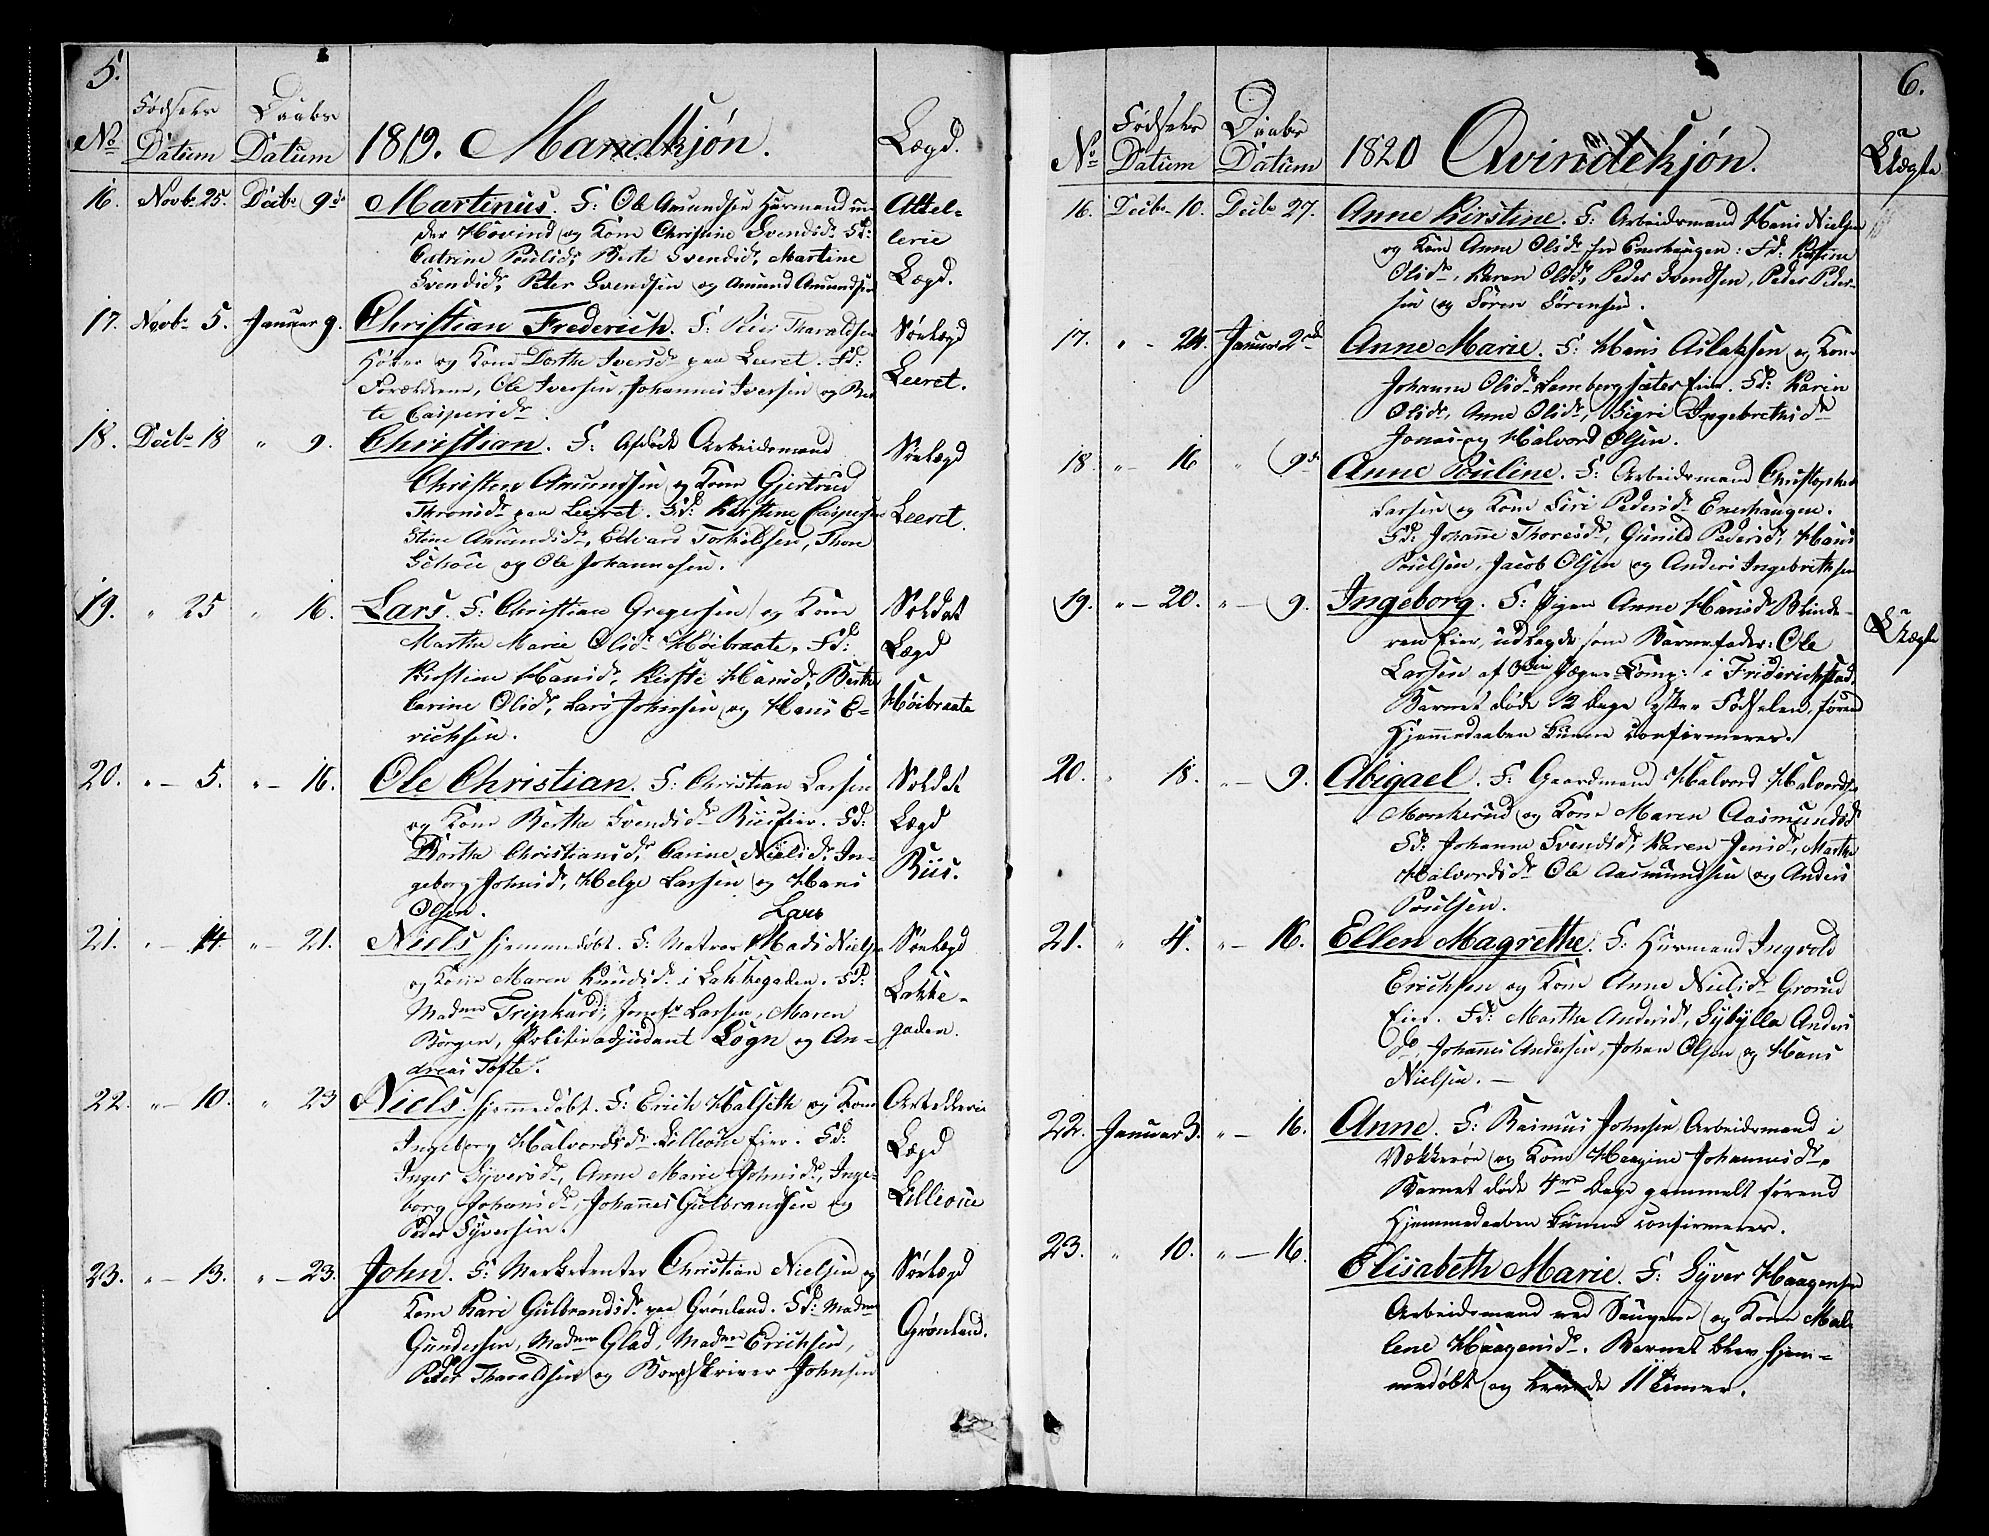 5.
No Fødsels Datum Daabs Datum 1819. Mandkjøn. Lægd.
16. Novbr 25. Decbr 9de Martinus. F: Ole Amundsen Huusmand un-
der Hovind og Kone Christine Svendsd. Fd:
Catrine Poulsd, Berte Svendsd, Martine
Svendsd, Peter Svendsen og Amund Amundsen
Lægd.
17. Novbr 5. Januar 9. Christian Frederich. F: Peter Tharaldsen
Høker og Kone Dorthe Iversd. paa Leeret. Fd:
Forældrene, Ole Iversen, Johannes Iversen og Ber-
te Caspersd.
Sørlægd
Leeret.
18. Decbr 18 " 9. Christian. F: Afdøde Arbeidsmand
Christen Amundsen og Kone Gjertrud
Thronsd. paa Leeret. Fd: Kirstine Caspersen
Stine Amundsd., Edvard Torkildsen, Thore
og Ole Johannesen.
Sørlægd
Leeret.
19. " 25 " 16. Lars. F: Christian Gregersen og Kone
Marthe Marie Olsd. Høibraate. Fd:
Kirstine Hansd, Kirsti Hansd, Berthe
Carine Olsd, Lars Johnsen og Hans E-
richsen.
Soldat
Lægd
Høibraate
20. " - 5. " - 16. Ole Christian. F: Christian Larsen
og Kone Berthe Svendsd. Riiseier. Fd:
Dorthe Christiansd, Carine Nielsd. In-
geborg Johnsd, Helge Larsen og Hans
Olsen.
Soldat
Lægd
Riis.
21. " - 14. " - 21. Niels hjemmedøbt. F: Matros Mads Nielsen
Lars
og Kone Maren Knudsd. i Lakkegaden. Fd:
Madme Tripkard, Jomfr Larsen, Maren
Borgen, Politieadjudant Sogn og An-
dreas Tofte.
Sørlægd
Lakke-
gaden.
22. " - 10. " 23 Niels. hjemmedøbt. F: Erich Halseth og Kone
Ingeborg Halvorsd. Lilleoue Eier. Fd:
Inger Syversd, Anne Marie Johnsd, Inge-
borg Johansd, Johannes Gulbrandsen og
Peder Syversen.
Artillerie
Lægd
Lilleoue
23. " - 13. " - 23. John. F: Marketenter Christian Nielsen og
Kone Kari Gulbrandsd. paa Grønland. Fd: Madme
Gundersen, Madme Glad, Madme Erichsen,
Peder Tharaldsen og Borgskriver Johnsen
Sørlægd
Grønland.
6.
No Fødsels Datum Daabs Datum 1820 Qvindekjøn.
16. Decbr 10. Decbr 27. Anne Kirstine. F: Arbeidsmand Hans Nielsen
og Kone Anne Olsd. fra Enerhaugen: Fd: Karine
Olsd., Karen Olsd, Peder Svendsen, Peder Peder-
sen og Søren Sørensen.
17. " - 24. Januar 2den Anne Marie. F: Hans Aslaksen og Kone
Johanne Olsd. Lambergsæter Eier. Fd: Karen
Olsd, Anne Olsd, Sigri Ingebrethsd.
Jonas og Halvord Olsen.
18. " - 16 " 9de Anne Pouline. F: Arbeidsmand Christopher
Larsen og Kone Siri Pedersd. Enerhaugen.
Fd: Johanne Thoresd, Gunild Pedersd, Hans
Poulsen, Jacob Olsen og Anders Ingebrethsen
19. " - 20. " - 9. Ingeborg. F: Pigen Anne Hansd. Blinde-
ren Eier, udlagde som Barnefader: Ole
Larsen af Jæger Komp: i Friderichstad.
Barnet døde 2 Dage efter Fødselen, førend
Hjemmedaaben kunne confirmeres.
20. " 18. " - 9. Abigael. F: Gaardmand Halvord Halvordsen
Monkerud og Kone Maren Aasmundsd.
Fd: Johanne Svendsd, Karen Jensd, Marthe
Halvordsd. Ole Aasmundsen og Anders
Poulsen.
21. " 4. " - 16. Ellen Magrethe. F: Huusmand Ingvold
Erichsen og Kone Anne Nielsd. Grorud
Eier. Fd: Marthe Andersd, Sybylla Anders
d., Johannes Andersen, Johan Olsen og Hans
Nielsen. -
22. Januar 3. " - 16. Anne. F: Rasmus Johnsen Arbeidsmand i
Vækkerøe og Kone Haagine Johannesd.
Barnet døde 4re Dage gammelt førend
Hjemmedaaben kunne confirmeres.
23. " 10. " - 16. Elisabeth Marie. F: Syver Haagensen
Arbeidsmand ved Saugene og Kone Mal-
lene Haagensd. Barnet blev hjem-
medøbt og levede 11 Timer.